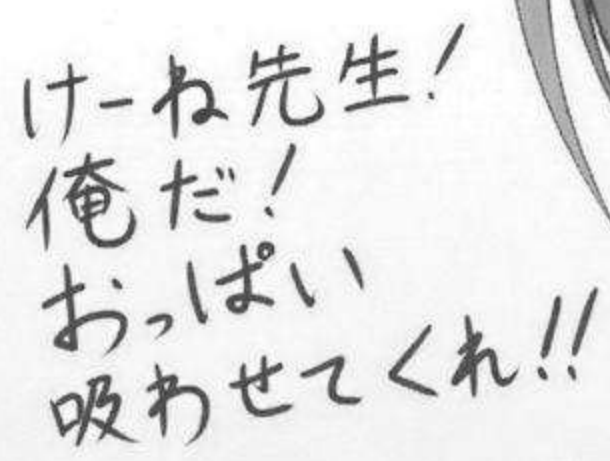 けーね先生!
俺だ!
おっぱい
吸わせてくれ!!